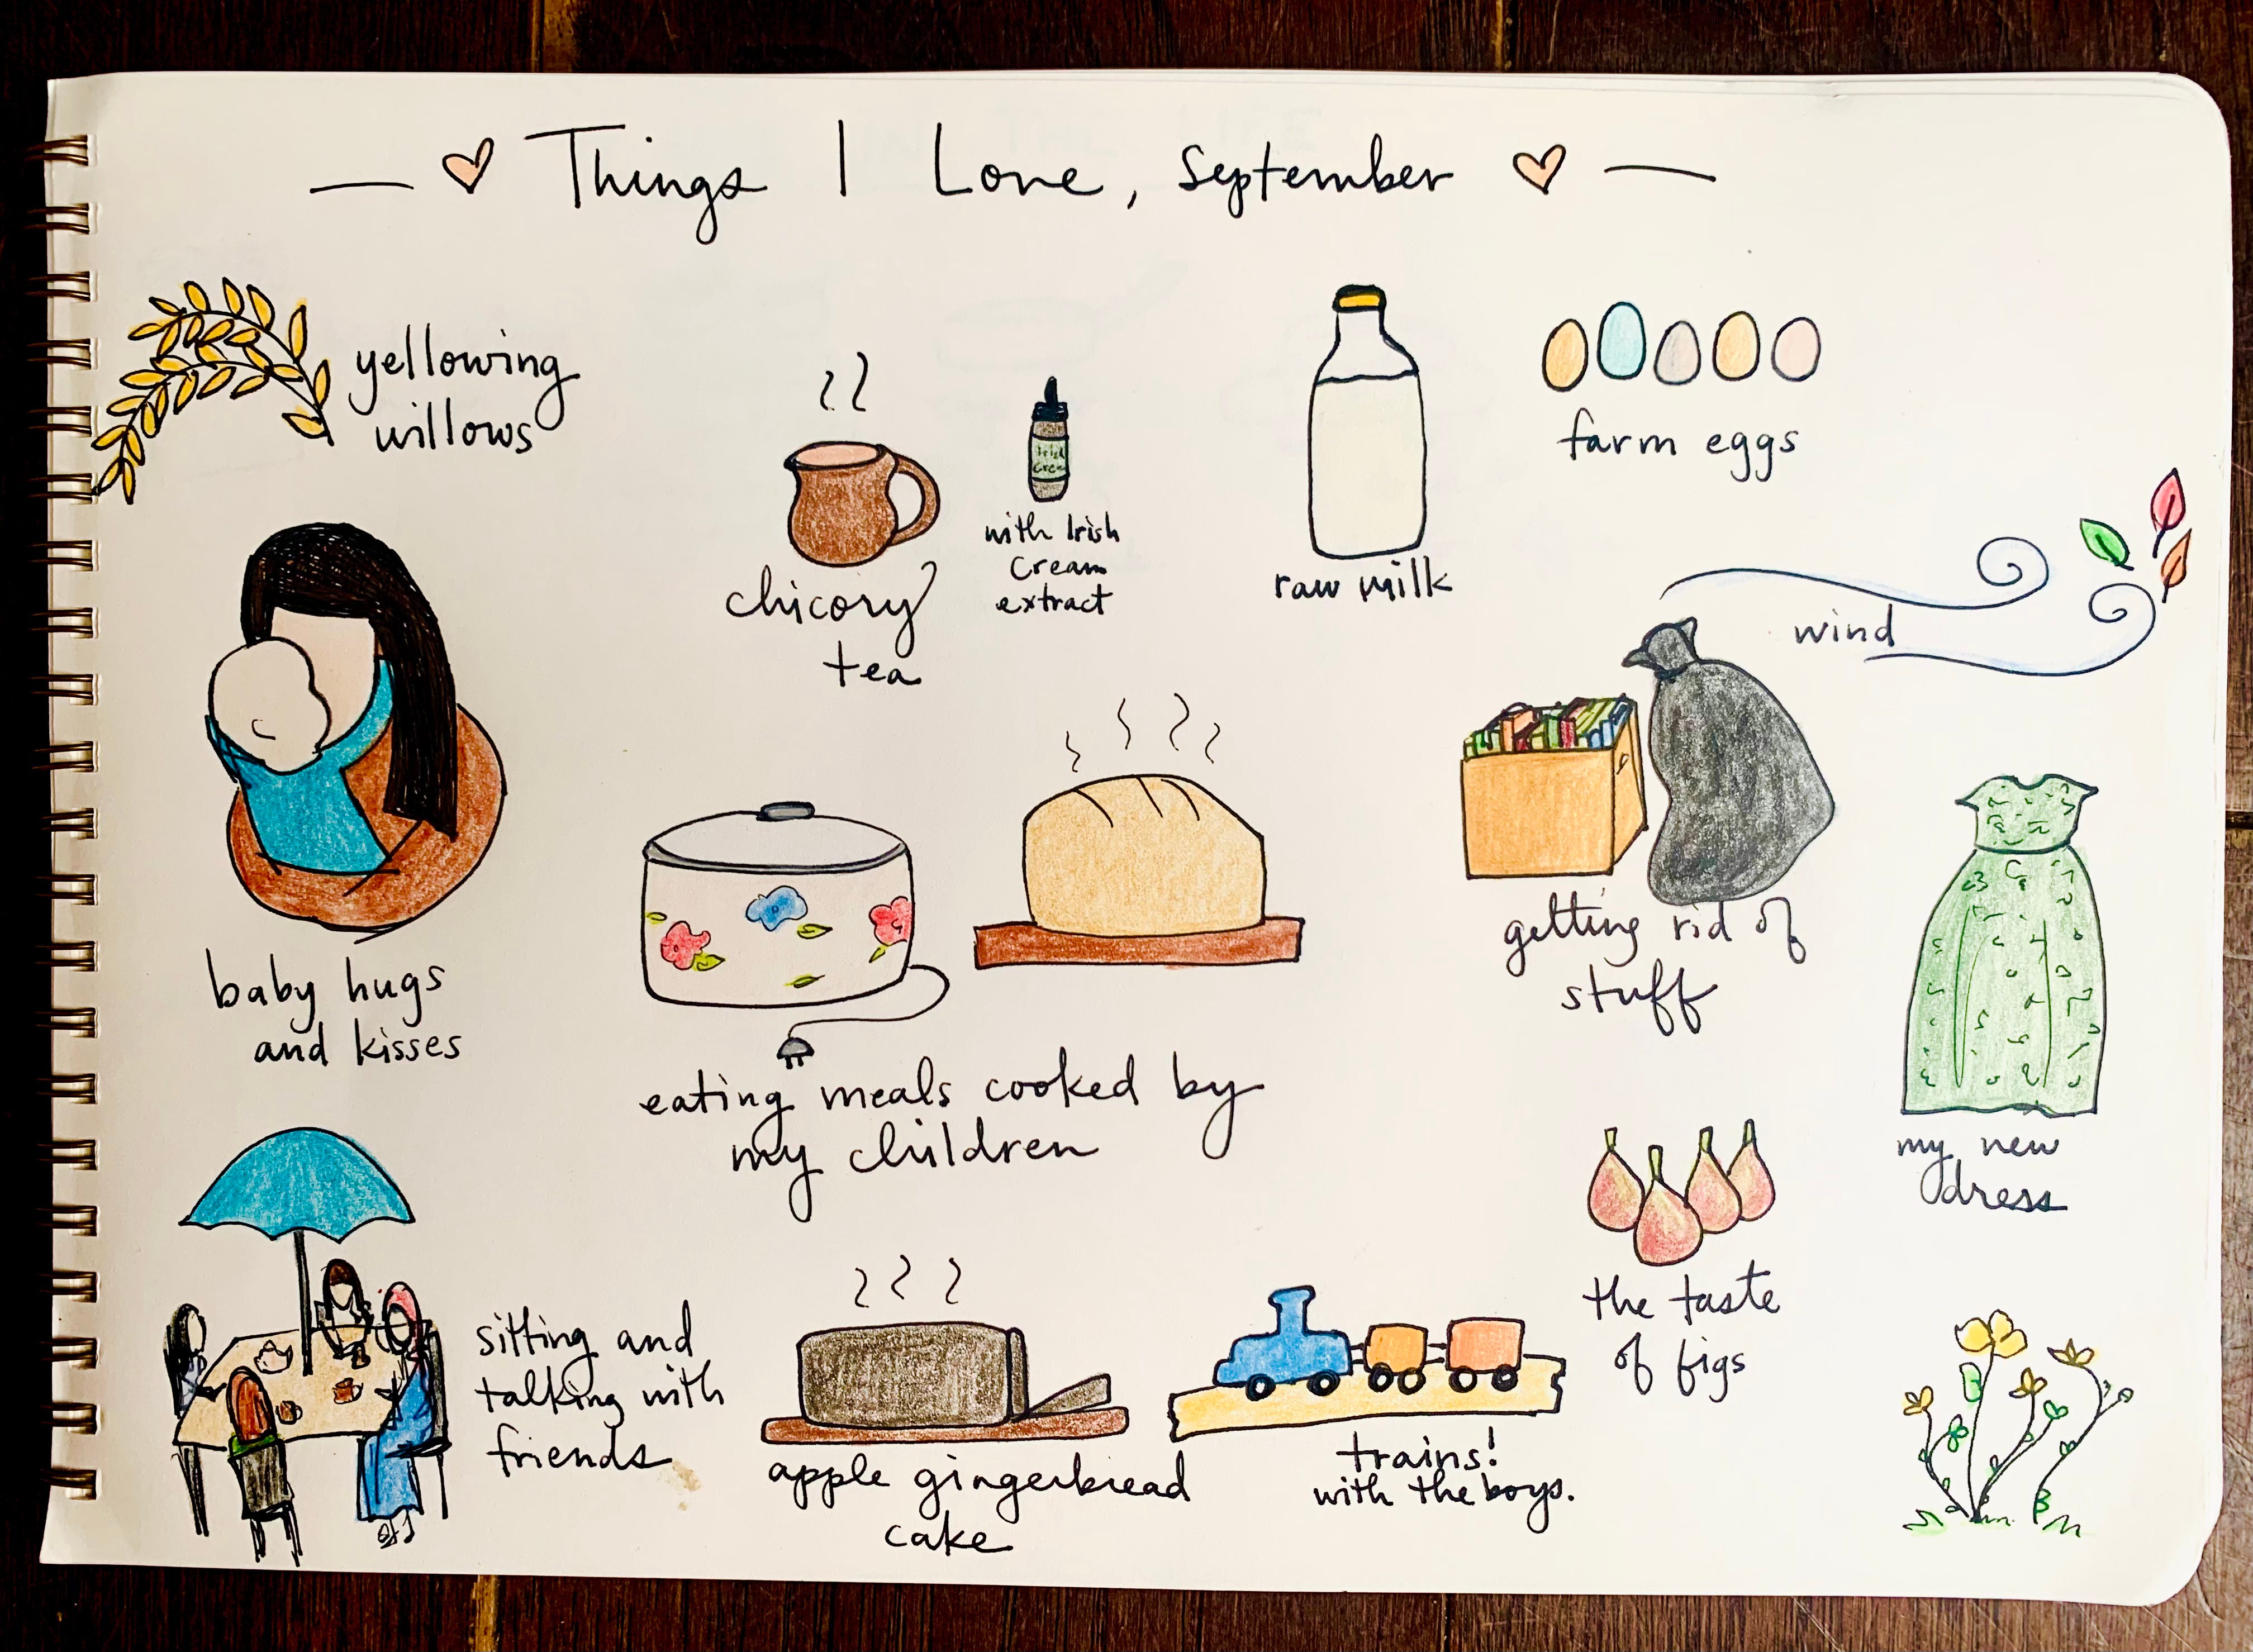 Things I Love, September
yellowing
willows
chicory
tea
Irish
Cream
with Irish
Cream
extract
raw milk
farm eggs
wind
baby hugs
and kisses
eating meals cooked by
my children
getting rid of
stuff
my new
dress
sitting and
talking with
friends
apple gingerbread
cake
trains!
with the boys.
the taste
of figs